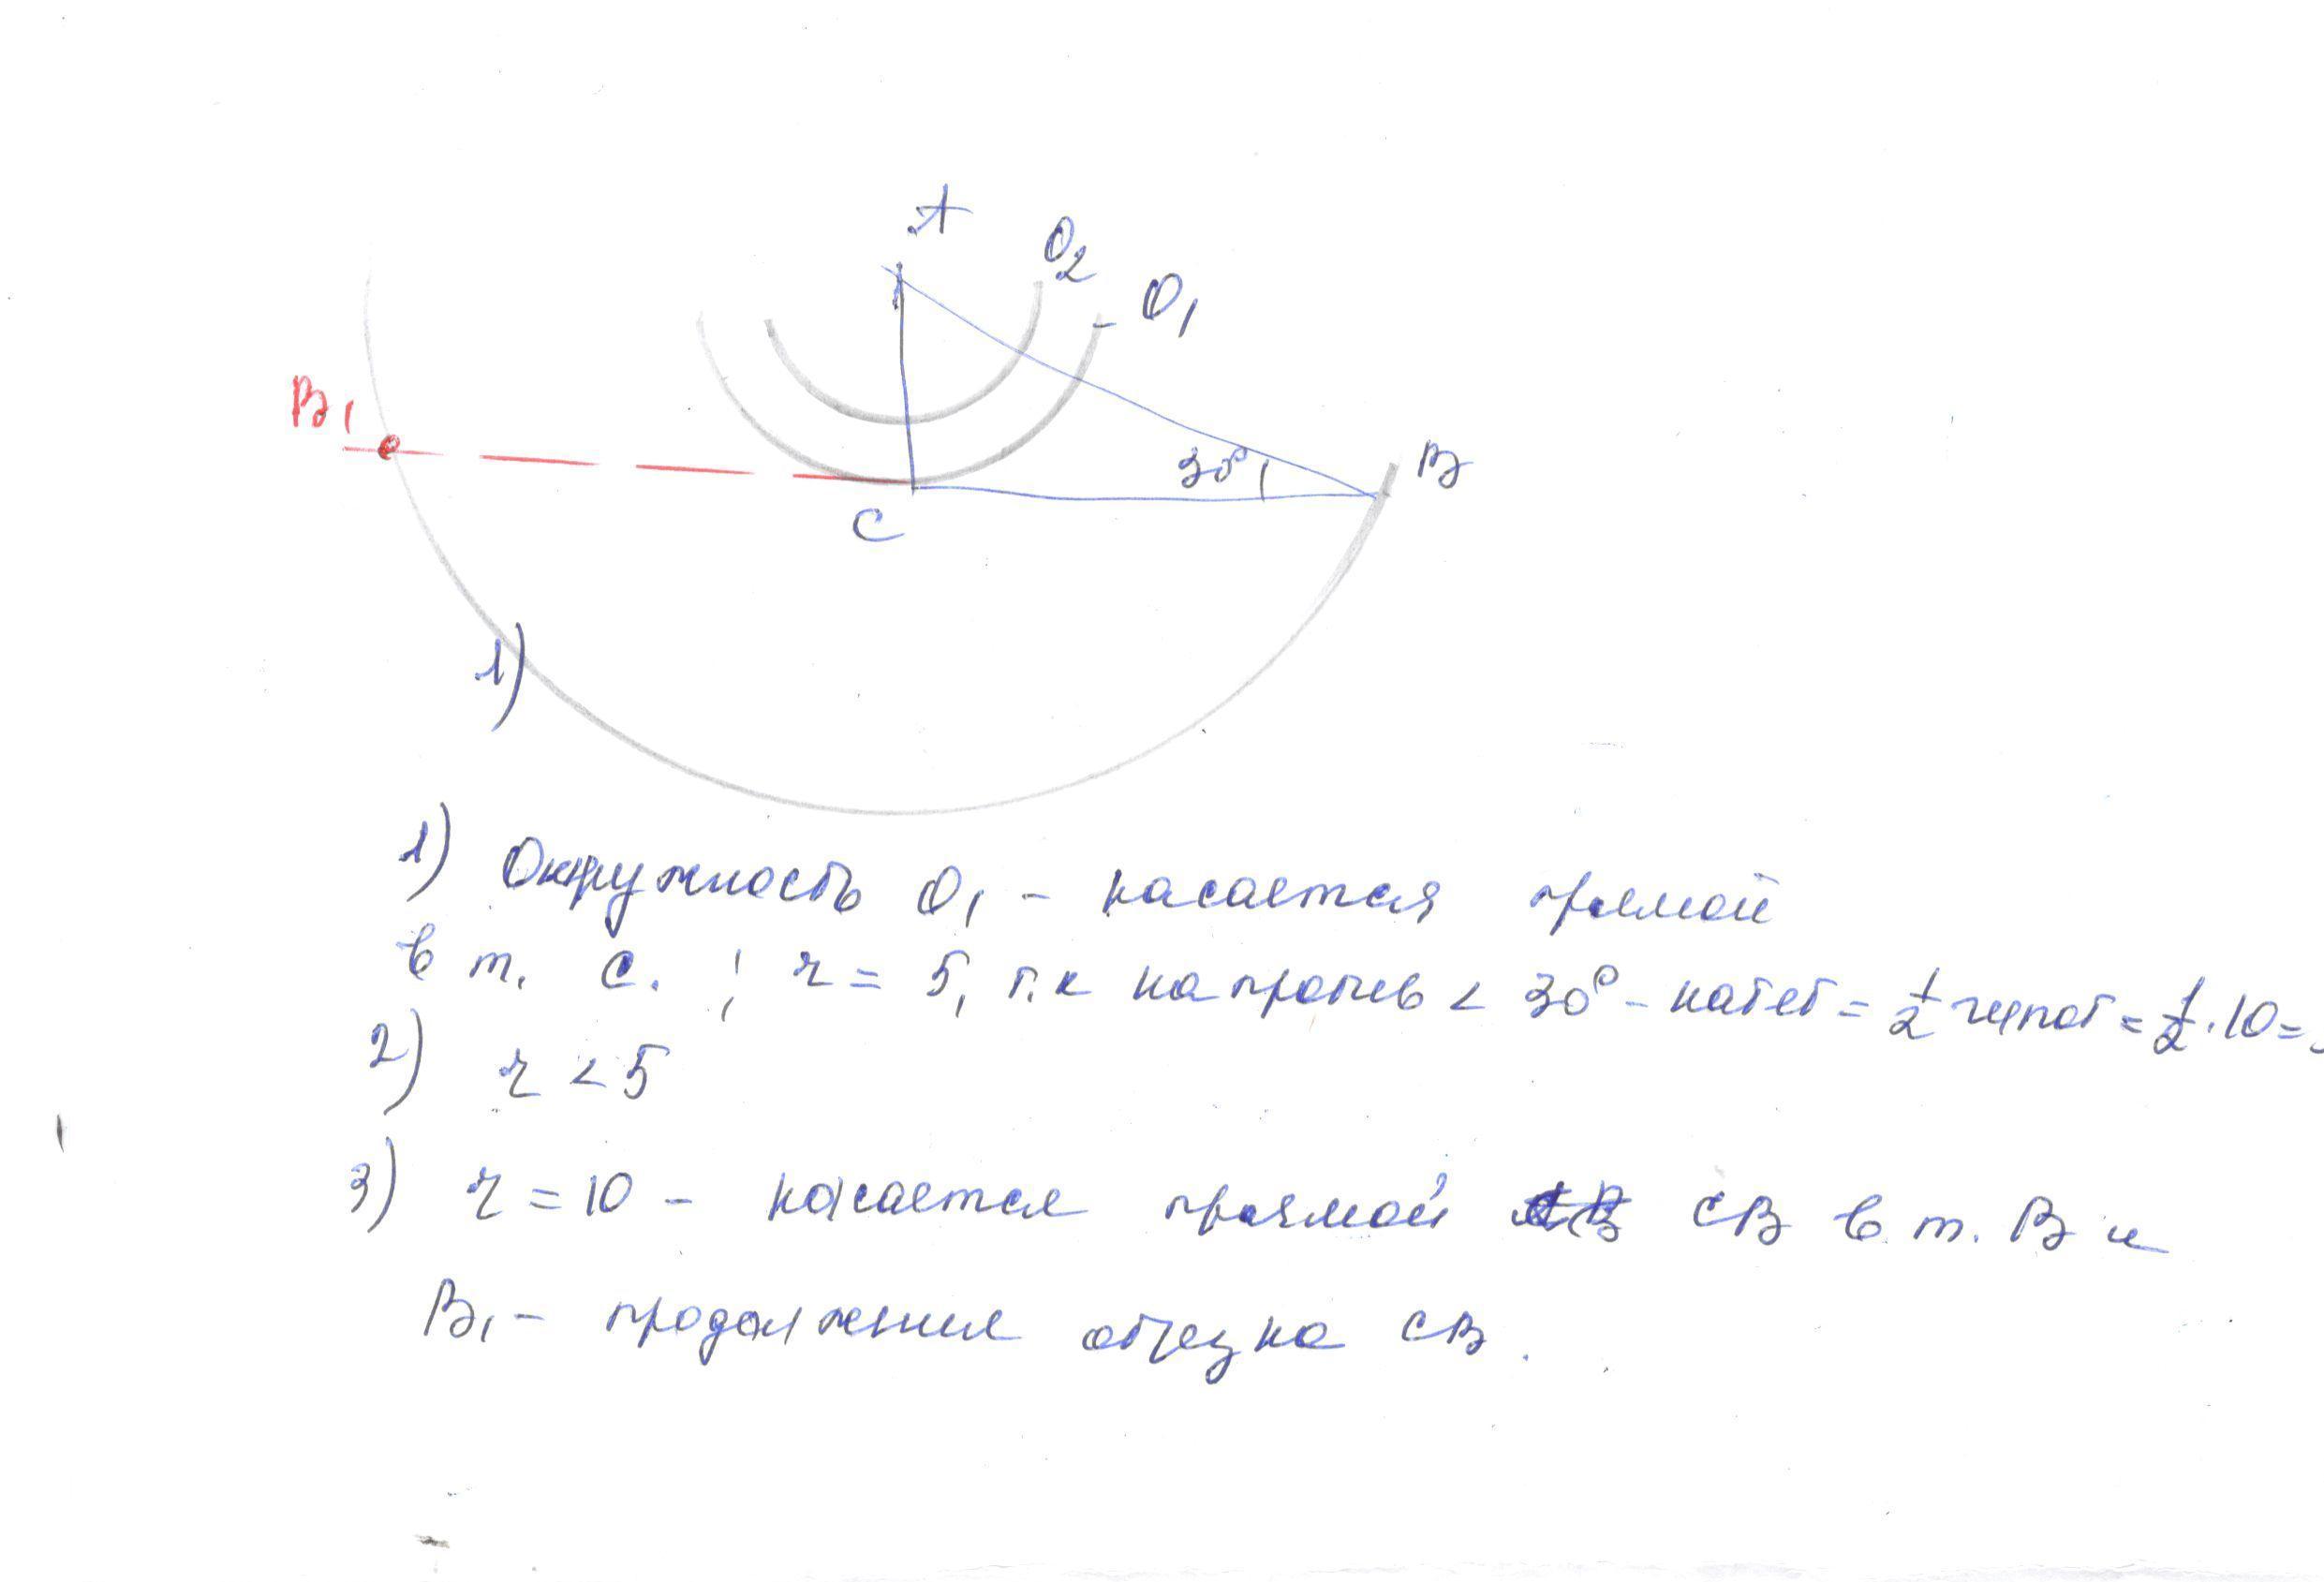 A
O₂
O₁
B₁
30°
B
C
1)
1) Окружность O₁ - касается прямой
в т. C. ; r = 5, т.к напротив < 30° - катет = 1/2 гипот = 1/2 · 10 =
2) r < 5
3) r = 10 - касается прямой CB в т. B и
B₁ - продолжение отрезка CB.